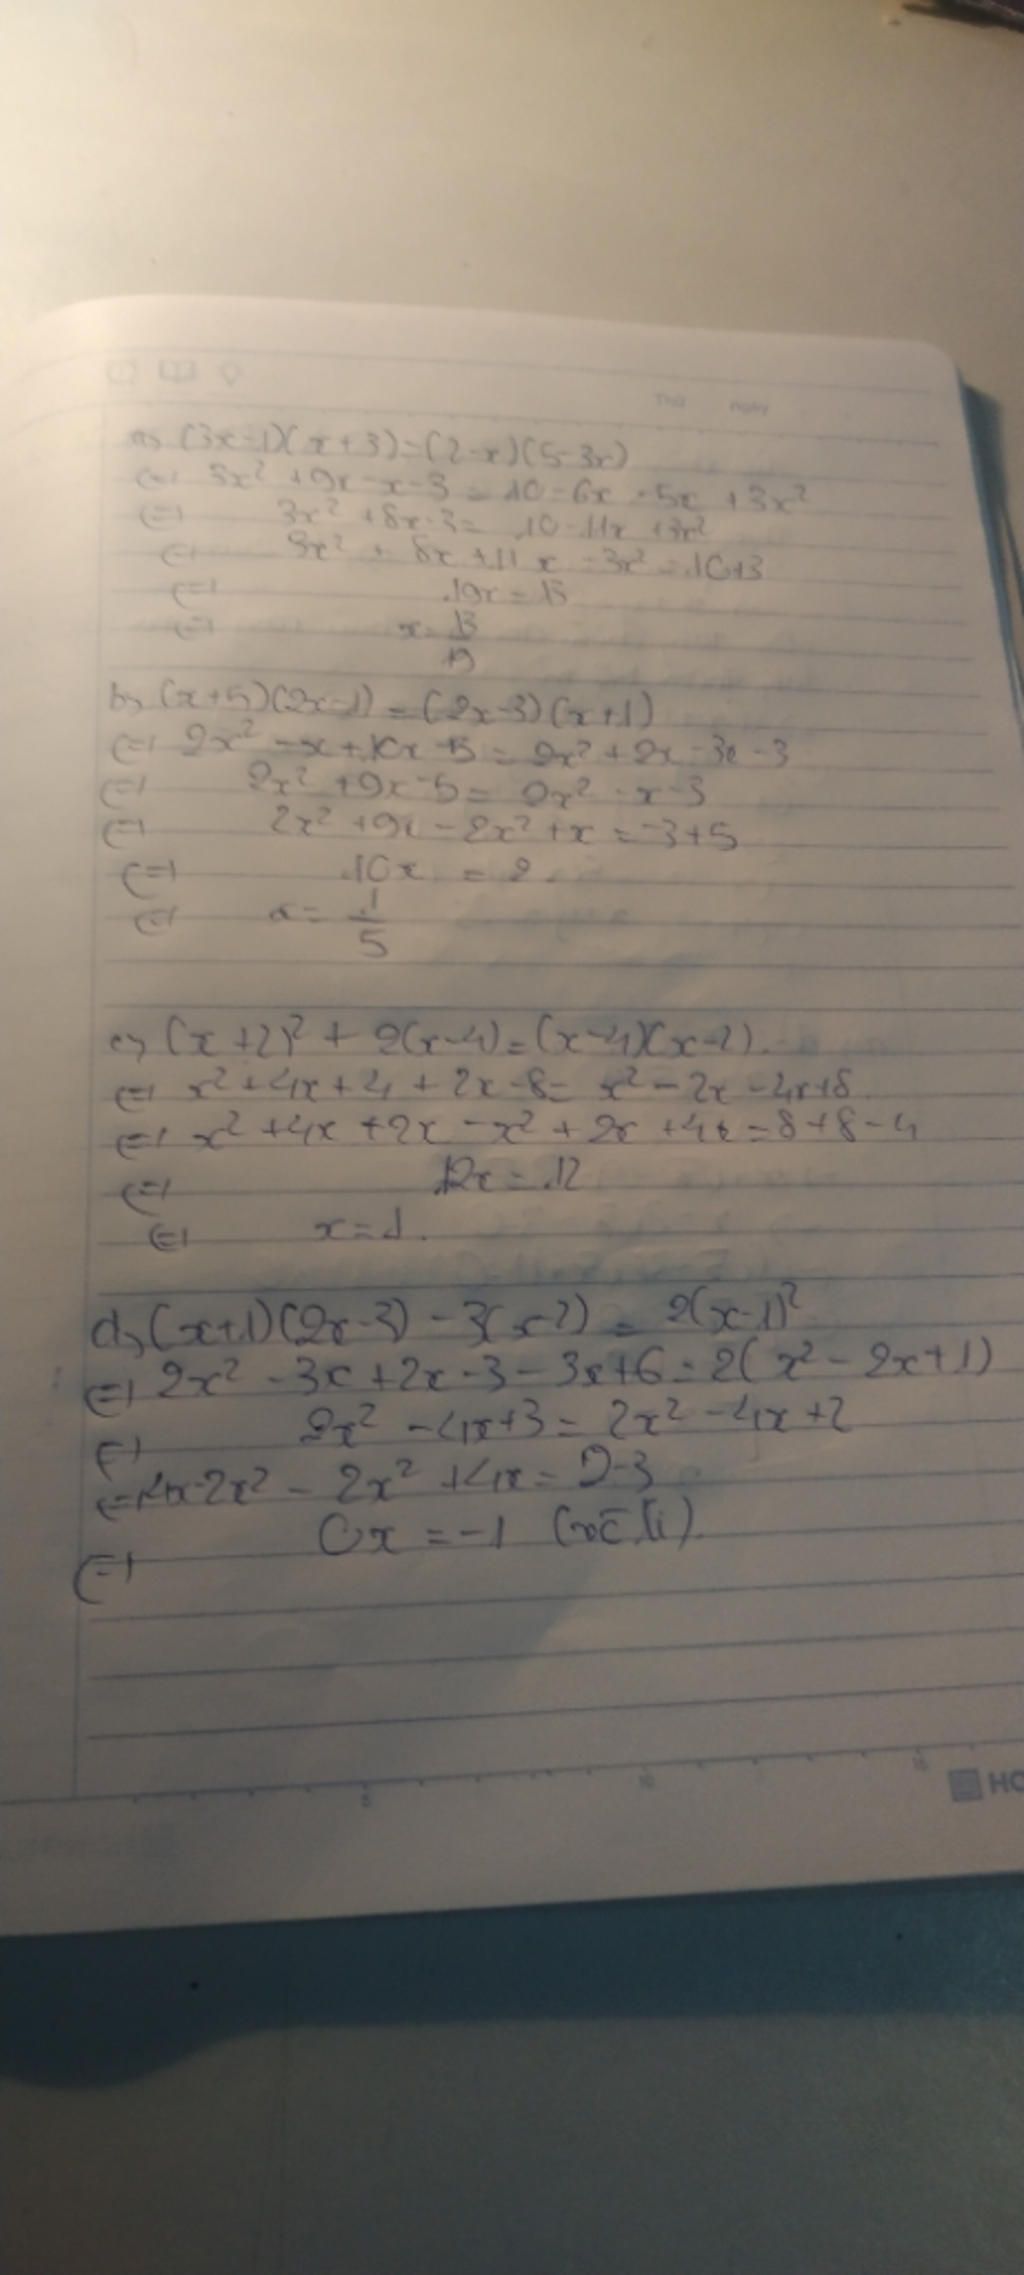 Thứ ngày
a, (3x-1)(x+3)=(2-x)(5-3x)
(=) 3x² +9x-x-3 = 10-6x-5x+3x²
(=) 3x² +8x-3= 10-11x+3x²
(=) 3x² + 8x+11x-3x²=10+3
(=) 19x=13
(=) x= 13/19
b, (x+5)(2x-1)=(2x-3)(x+1)
(=) 2x² -x+10x-5=2x²+2x-3x-3
(=) 2x² +9x-5= 2x² -x-3
(=) 2x² +9x-2x²+x=-3+5
(=) 10x = 2.
(=) x= 1/5
c, (x+2)²+ 2(x-4)=(x-4)(x-2).
(=) x²+4x+4+2x-8= x²-2x-4x+8.
(=) x² +4x+2x-x²+2x+4x=8+8-4
(=) 12x=12
(=) x=1.
d, (x+1)(2x-3)-3(x-2)= 2(x-1)²
(=) 2x² -3x+2x-3-3x+6=2(x²-2x+1)
(=) 2x² -4x+3= 2x²-4x+2
(=) -4x-2x² - 2x² +4x= 2-3
(=) 0x =-1
HO